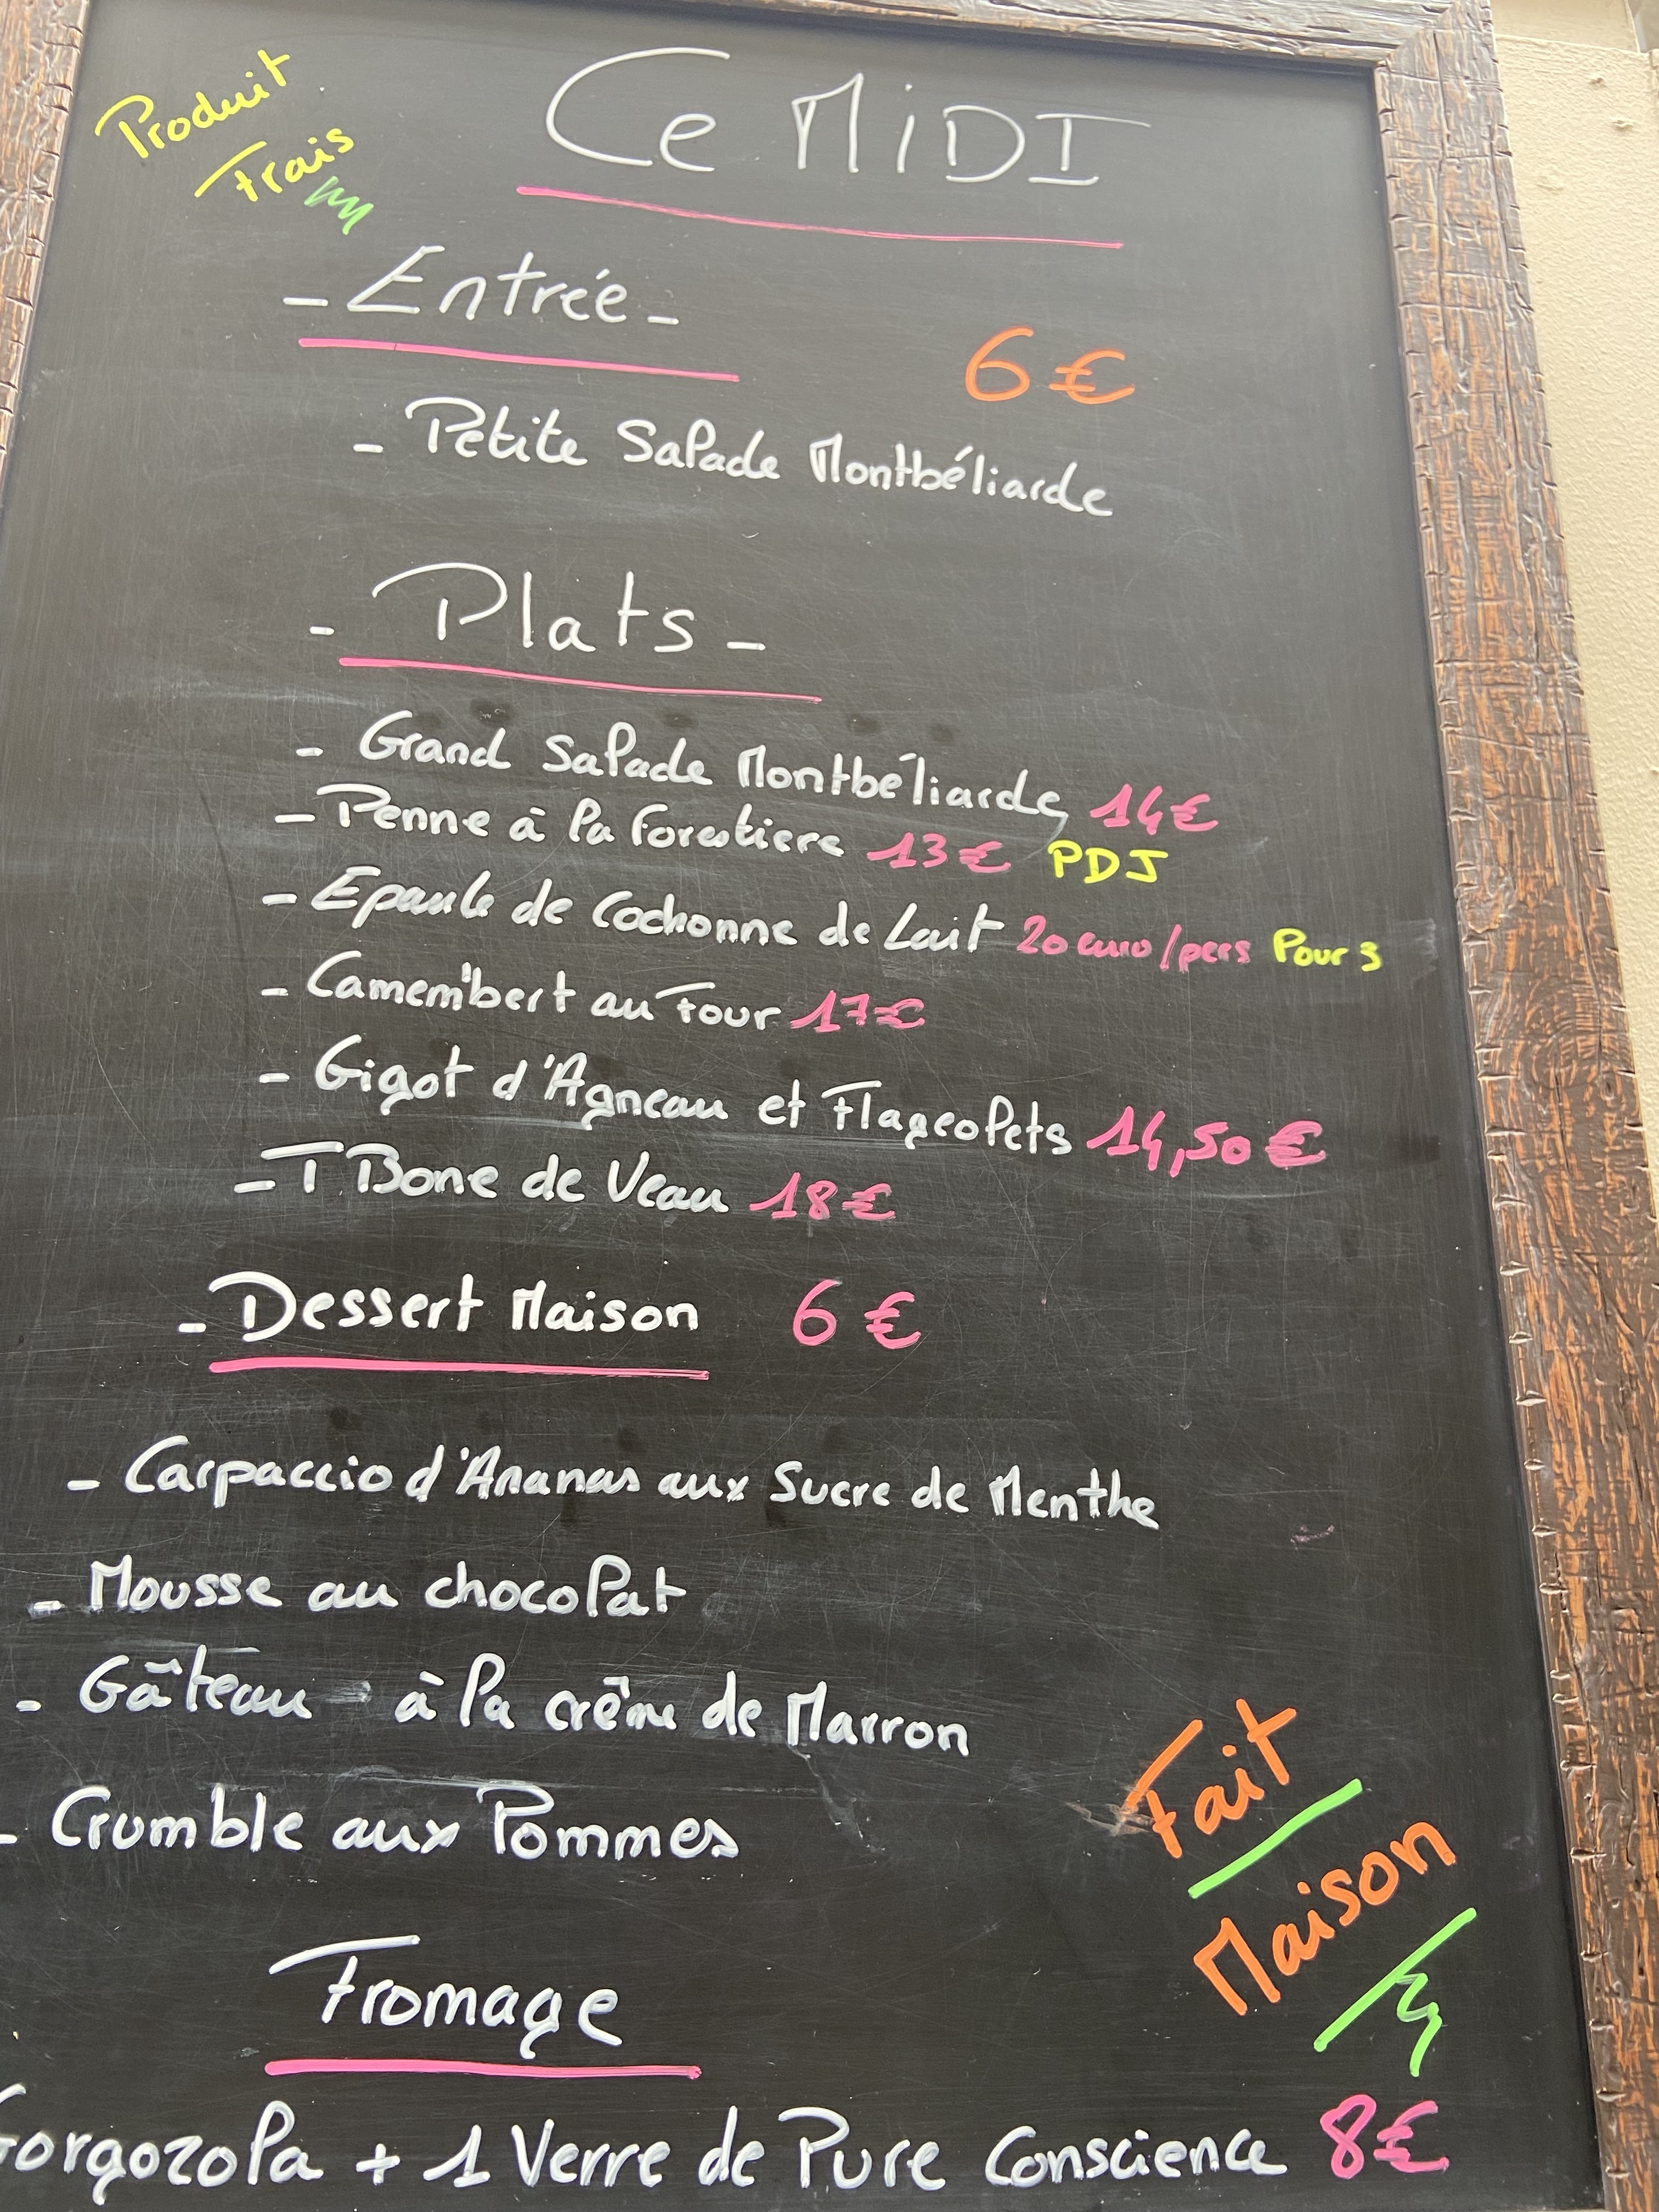 Produit
Frais
Ce MiDI
- Entrée -
6€
- Petite Salade Montbéliarde
- Plats -
- Grand Salade Montbéliarde, 14€
- Penne à la Forestiere 13€ PDJ
- Epaule de Cochonne de Lait 20 euro/pers Pour 3
- Camembert au Four 17€
- Gigot d'Agneau et Flageolets 14,50€
- T.Bone de Veau 18€
- Dessert Maison 6€
- Carpaccio d'Ananas aux Sucre de Menthe
- Mousse au chocolat
- Gâteau à la crême de Marron
- Crumble aux Pommes
Fait
Maison
Fromage
Gorgozola + 1 Verre de Pure Conscience 8€